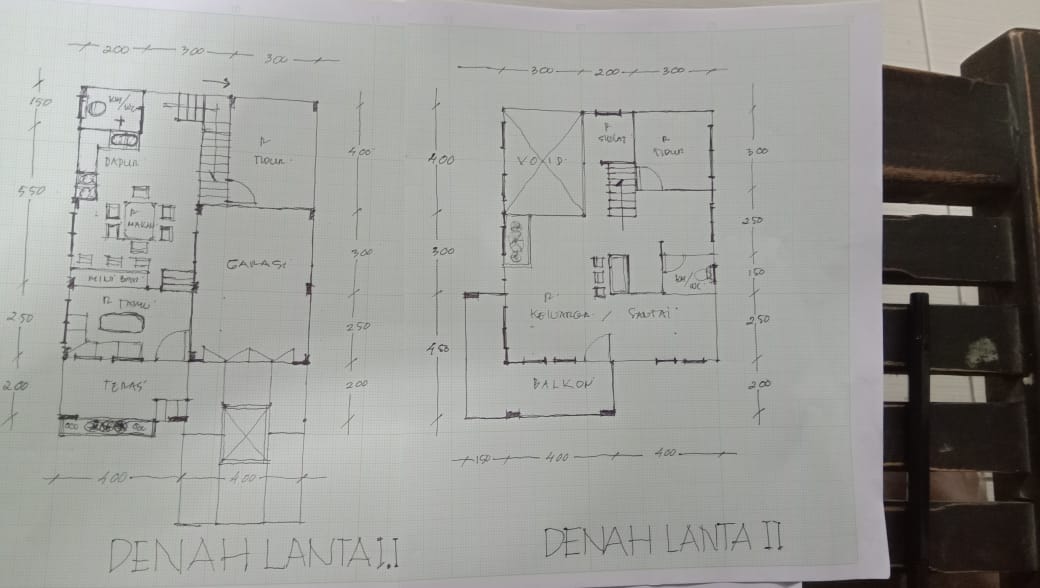 200 300 300
150
550
250
200
KM/WC
DAPUR
R
MAKAN
MINI BAR
R TAMU
TERAS
R
TIDUR
GARASI
400
300
250
200
400 400
DENAH LANTAI.I
300 200 300
400
300
450
VOID
R
SHOLAT
R
TIDUR
KM/WC
R
KELUARGA / SANTAI
BALKON
300
250
150
250
200
150 400 400
DENAH LANTA II